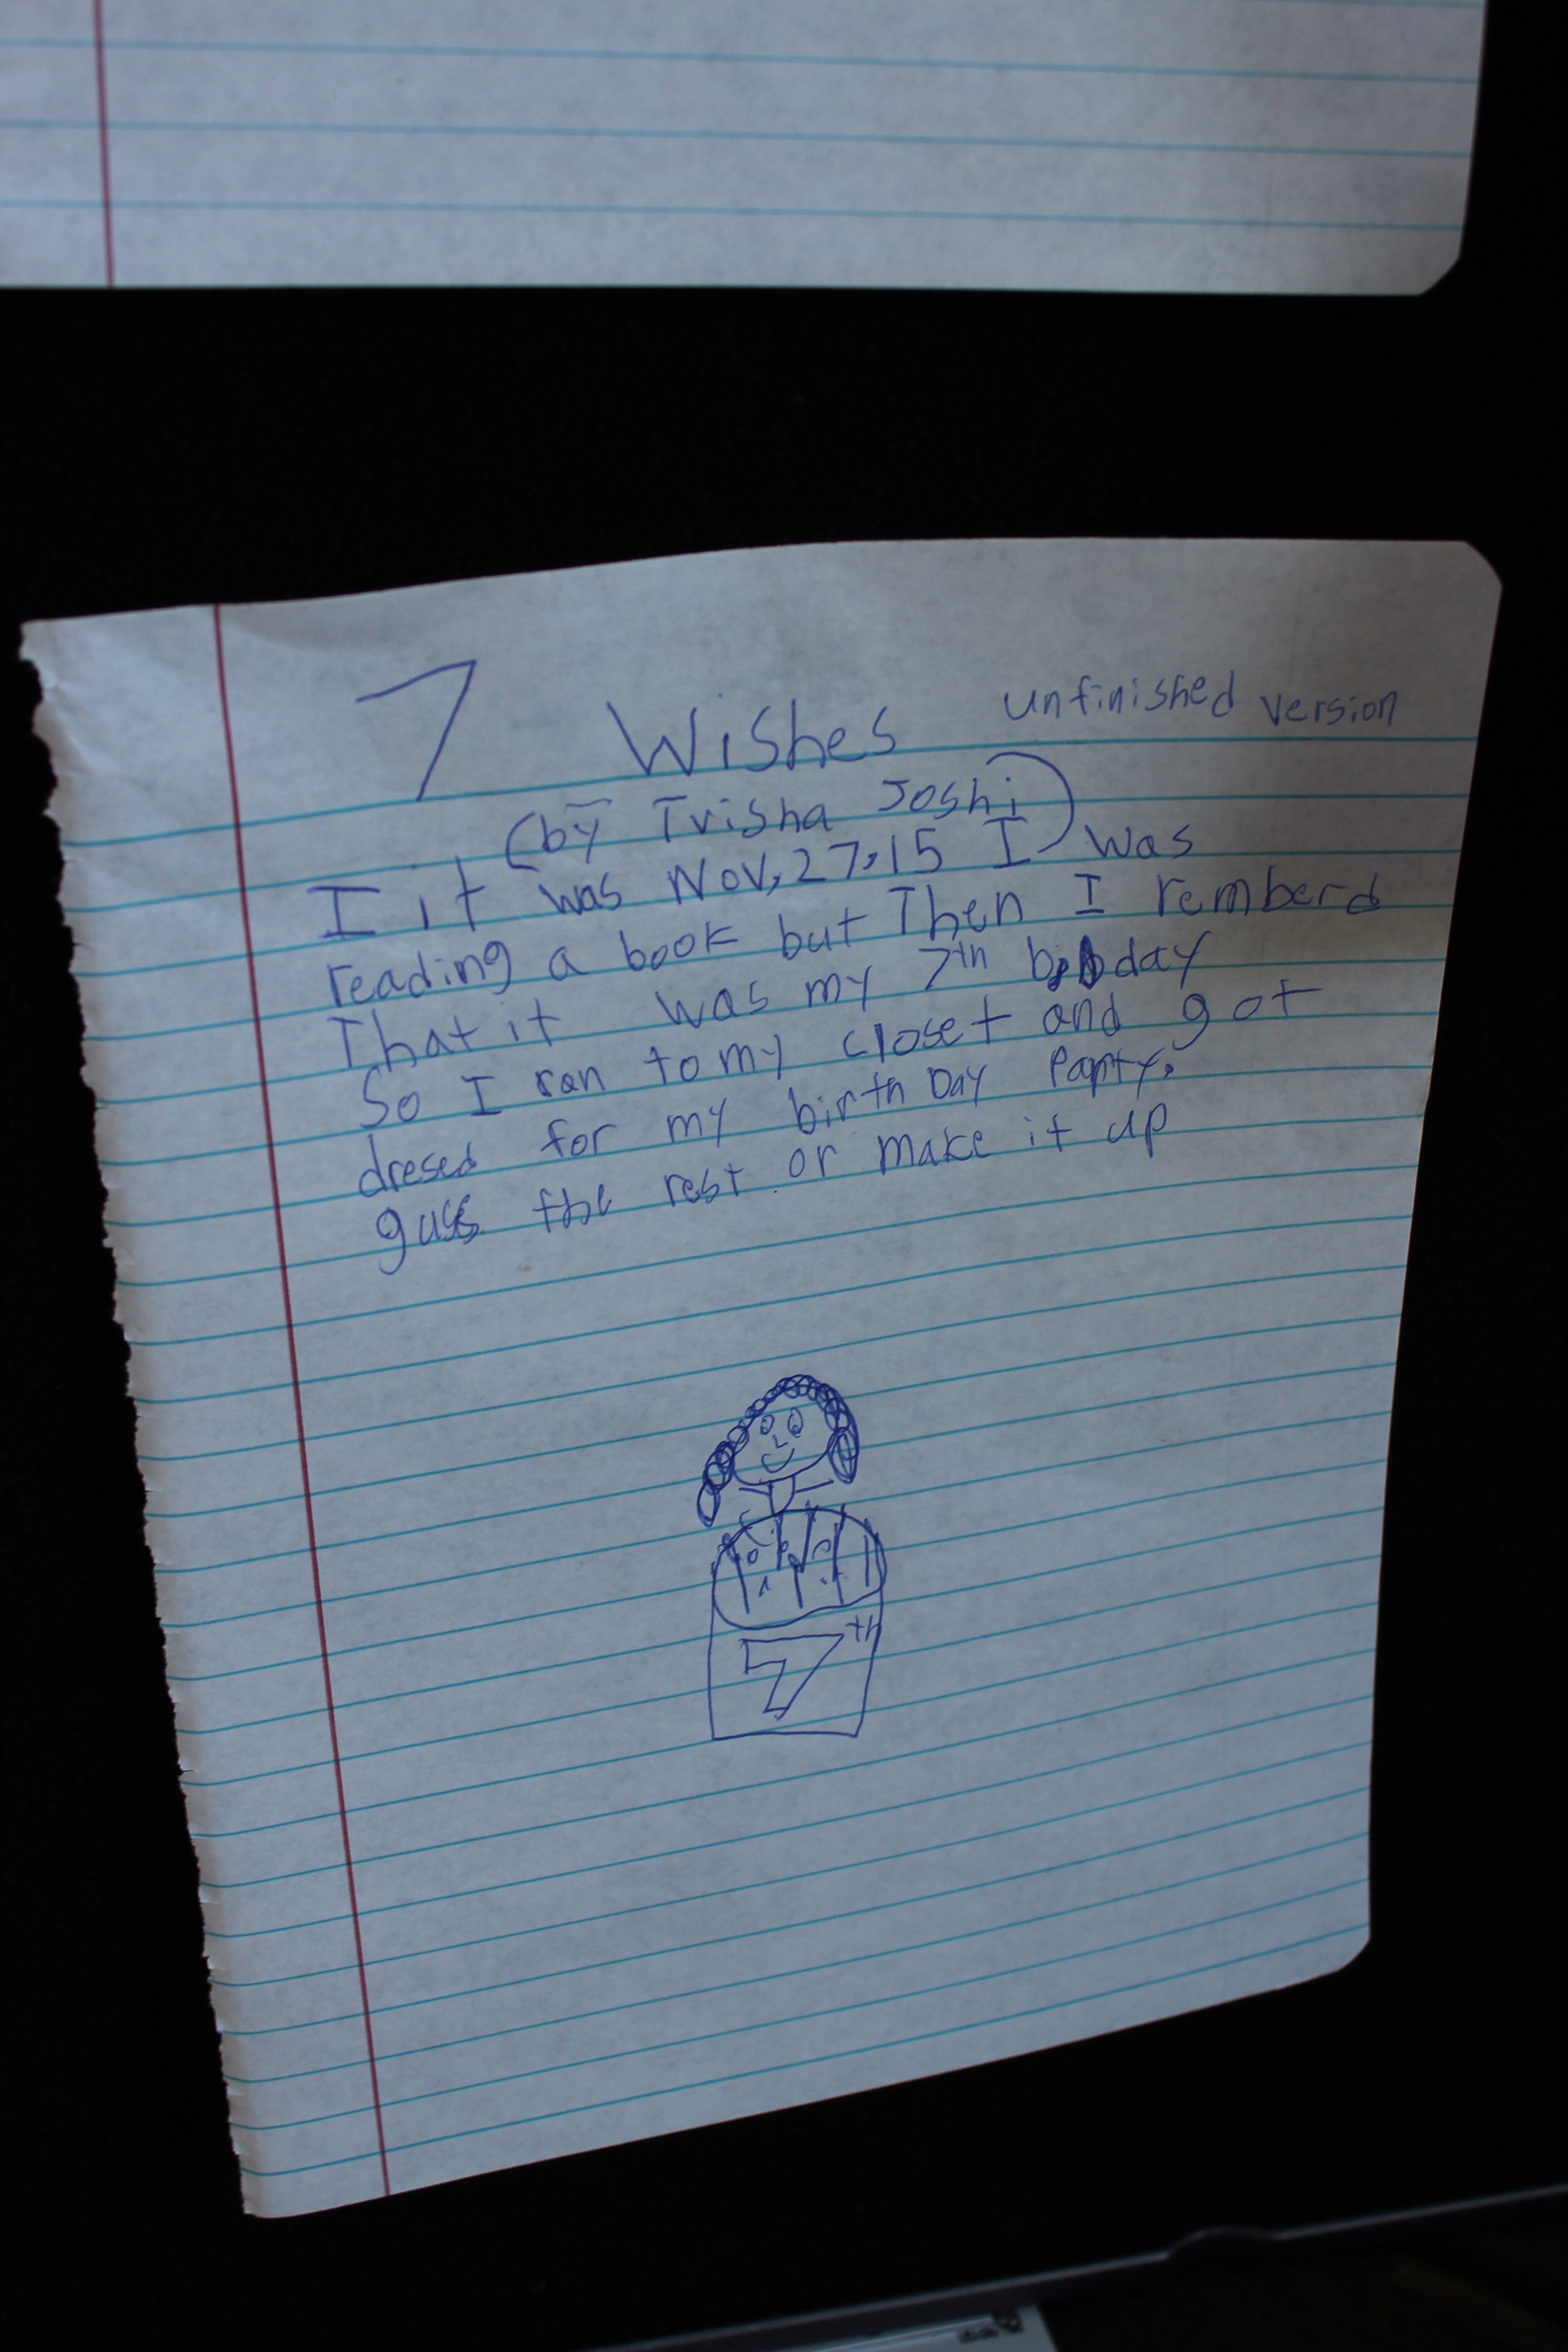 7 Wishes unfinished version
(by Trisha Joshi)
I it was Nov, 27, 15 I was
reading a book but Then I remberd
That it was my 7th day
So I ran to my closet and got
dresed for my birth Day Party.
the rest or make it up
7th